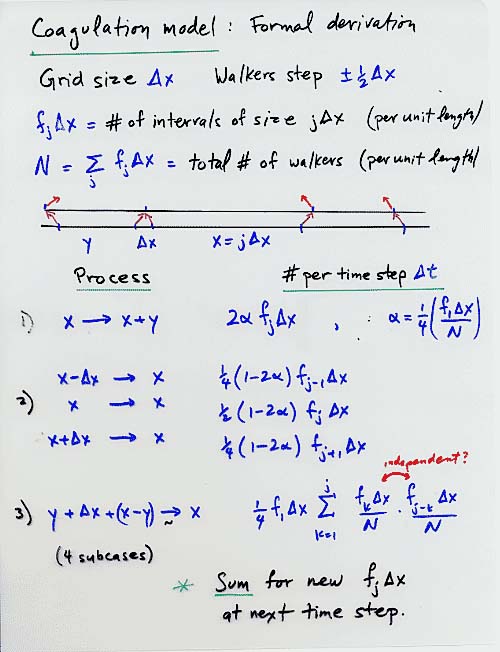 Coagulation model : Formal derivation
Grid size Δx Walkers step ±½Δx
f_jΔx = # of intervals of size jΔx (per unit length)
N = Σ_j f_jΔx = total # of walkers (per unit length)
y Δx x=jΔx
Process # per time step Δt
1) x → x+y 2α f_jΔx , : α=¼(f_1Δx/N)
x-Δx → x ¼(1-2α) f_{j-1}Δx
2) x → x ½(1-2α) f_jΔx
x+Δx → x ¼(1-2α) f_{j+1}Δx
independent?
3) y+Δx+(x-y) → x ¼ f_1Δx Σ_{k=1}^{j} f_kΔx/N · f_{j-k}Δx/N
~
(4 subcases)
* Sum for new f_jΔx
at next time step.